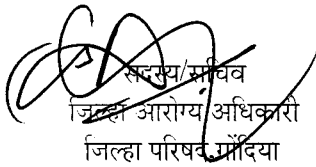 सदस्य/सचिव
जिल्हा आरोग्य अधिकारी
जिल्हा परिषद,गोंदिया